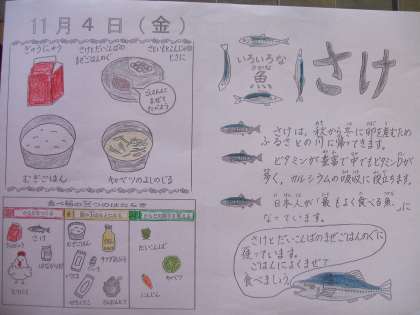 11月4日(金)
ぎゅうにゅう
さけとだいこんばの
まぜごはんのぐ
ごはんに
まぜて
たべよう
むぎごはん
キャベツのみしのしる
いろいろな
魚
さかな
さけ
さけは、秋から冬に卵を産むため
ふるさとの川に帰ってきます。
ビタミンが豊富で中でもビタミンDが
多く、カルシウムの吸収に役立ちます。
日本人が「最もよく食べる魚」
になっています。
さけとだいこんばのまぜごはんのぐに
使っています。
ごはんによくまぜて
食べましょう。
さけ
むぎごはん
だいこんば
キャベツ
にんじん